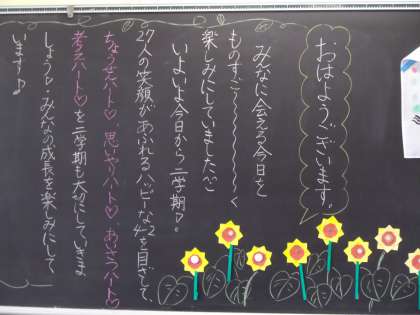 おはようございます。
みんなに会える今日を
ものすご〜〜〜〜〜〜〜く
楽しみにしていました(^^)
いよいよ今日から二学期♪。
27人の笑顔があふれるハッピーな4-2を目ざして、
ちょうせんハート♡、思いやりハート♡、あいさつハート♡
考えハート♡を二学期も大切にしていきま
しょうね。みんなの成長を楽しみにして
います♪